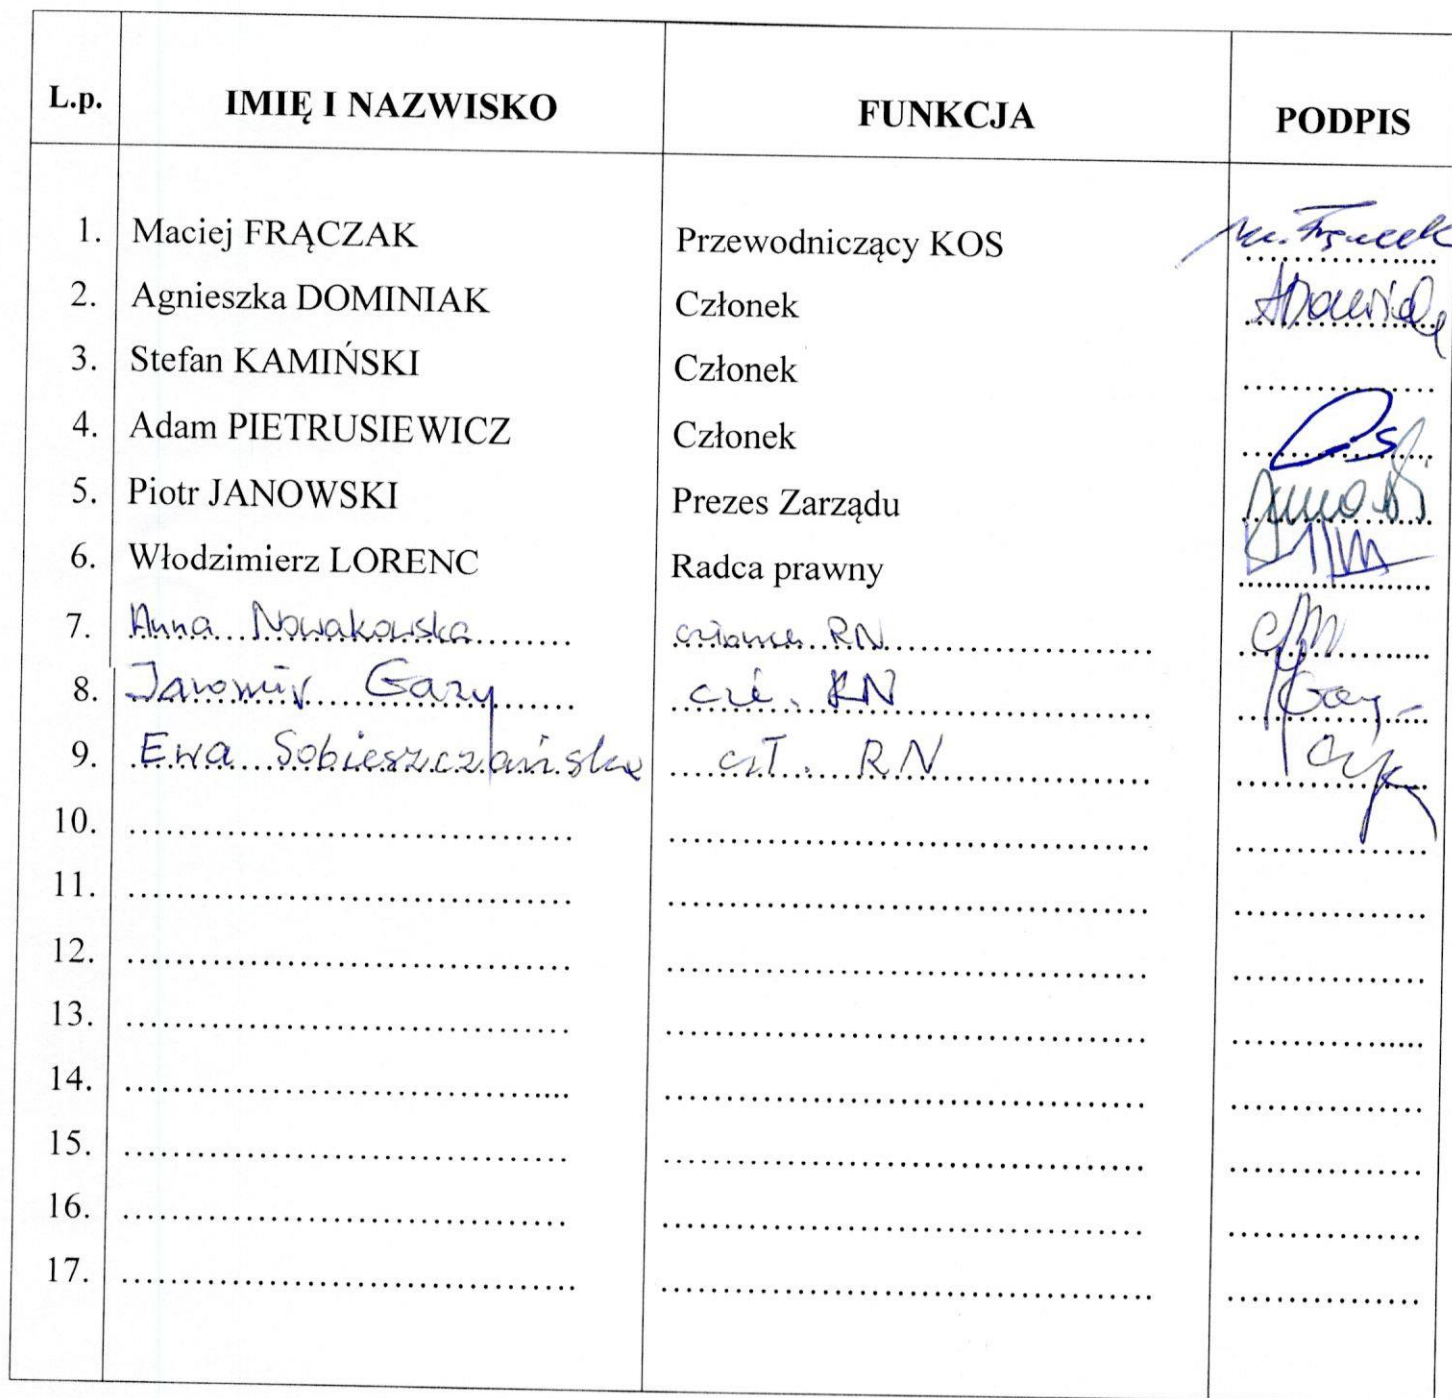 L.p. IMIĘ I NAZWISKO FUNKCJA PODPIS
1. Maciej FRĄCZAK Przewodniczący KOS
2. Agnieszka DOMINIAK Członek
3. Stefan KAMIŃSKI Członek
4. Adam PIETRUSIEWICZ Członek
5. Piotr JANOWSKI Prezes Zarządu
6. Włodzimierz LORENC Radca prawny
7. Anna Nowakowska członek RN
8. Jaromir Gazy czł. RN
9. Ewa Sobieszczańska czł. RN
10.
11.
12.
13.
14.
15.
16.
17.